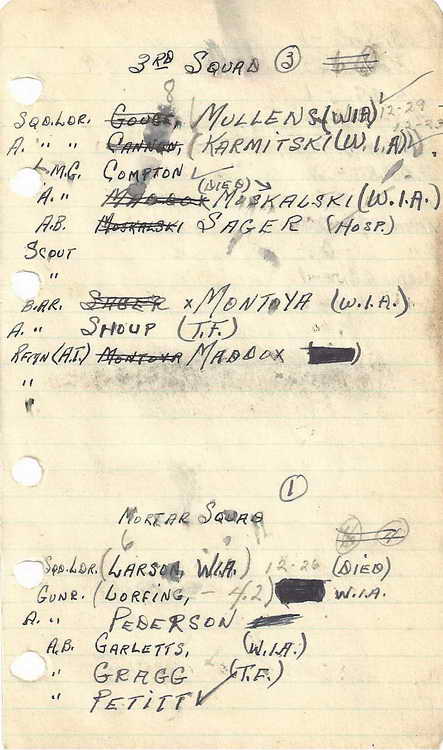 3RD SQUAD 3
8
SQD.LDR. GOUGE, MULLENS (WIA) 12-29
A. " " CANNON, (KARMITSKI (W.I.A))
L.M.G. COMPTON ✓
(DIED) →
A. " MADDOX MOSKALSKI (W.I.A.)
A.B. MOSKALSKI SAGER (HOSP.)
SCOUT
"
B.AR. SAGER x MONTOYA (W.I.A.)
A. " SHOUP (T.F.)
RFMN (A.T.) MONTOYA MADDOX ( )
"
"
1
MORTAR SQUAD
6
SQD.LDR. (LARSON, W.I.A.) 12-26 (DIED)
GUNR. (LORFING, - 4.2) W.I.A.
A. " PEDERSON
A.B. GARLETTS, (W.I.A.)
" GRAGG (T.F.)
" PETITT ✓